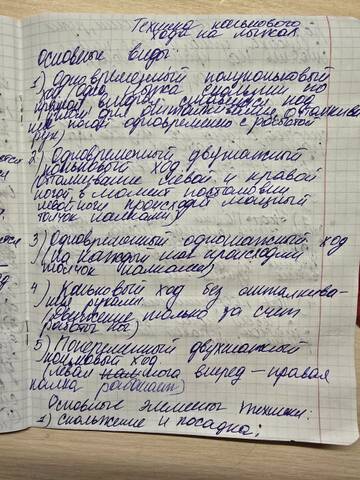 Техника конькового
хода на лыжах.
Основные виды:
1) Одновременный полуконьковый
ход (одна лыжа скользит по
прямой, вторая ставится под
углом для отталкивания
ногой одновременно с работой
рук)
2) Одновременный двухшажный
коньковый ход
(отталкивание левой и правой
ногой, в момент постановки
левой ноги происходит мощный
толчок палками)
3) Одновременный одношажный ход
(на каждый шаг происходит
толчок палками)
4) Коньковый ход без отталкива-
ния руками
(движение только за счет
работы ног)
5) Попеременный двухшажный
коньковый ход
(левая нога вперед – правая
палка работает)
Основные элементы техники:
1) скольжение и посадка;